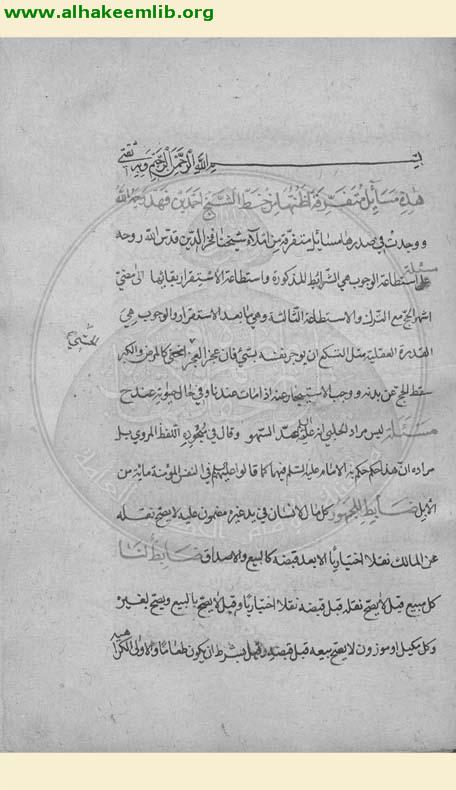 www.alhakeemlib.org
بسم الله الرحمن الرحيم وبه ثقتي
هذه مسائل متفرقة نقلتها من خط الشيخ احمد بن فهد رحمه الله
ووجدت في صدرها مسائل متفرقة من املاء شيخنا فخر الدين قدس الله روحه
مسئلة
استطاعة الوجوب هي الشرائط المذكورة واستطاعة الاستقرار بقائها الى مضي
اشهر الحج مع الترك والاستطاعة الثالثة وهي ما بعد الاستقرار والوجوب هي
القدرة العقلية مثل التسكع ان يوجر نفسه بشيء فان عجز العجز كالمرض والكبر
سقط الحج عن بدنه ووجب الاستيجار عنه اذا مات عندنا وفي حال حيوته عند ح
مسئلة ليس مراد الحلي انه عليه السلم السهو وقال في سجوده اللفظ المروي بل
مراده ان هذا حكم حكم به الامام عليه السلم فيهما كما قالوا عليهم في النفس المؤمنة مائة من
الابل ضابط للجمهور كل مال الانسان في يد غيره مضمون عليه لا يصح نقله
عن المالك نقلا اختياريا الا بعد قبضه كالبيع والاصداق ضابط لنا
كل مبيع قيل لا يصح نقله قبل قبضه نقلا اختياريا وقيل لا يصح بالبيع ويصح بغيره
وكل مكيل او موزون لا يصح بيعه قبل قبضه وقيل بشرط ان يكون طعاما والاولى الكراهية